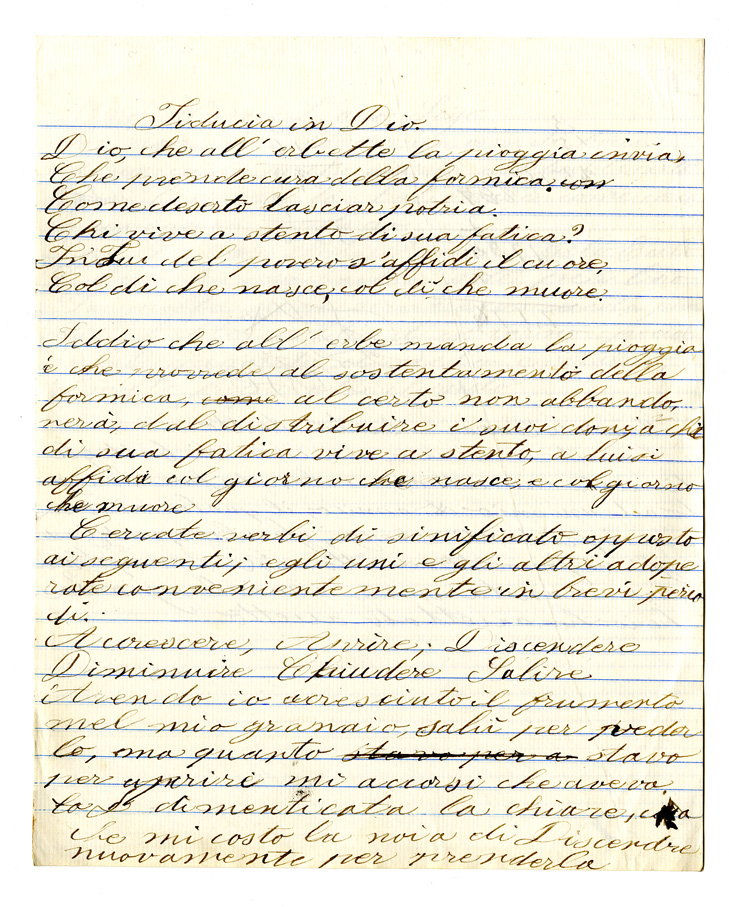 Fiducia in Dio.
Dio, che all' erbette la pioggia invia,
Che prende cura della formica.
Come deserto lasciar potria.
Chi vive a stento di sua fatica?
In Lui del povero s'affidi il cuore,
Col dì che nasce, col dì che muore.
Iddio che all' erbe manda la pioggia
e che provvede al sostentamento della
formica, come al certo non abbando,
nerà, dal distribuire i suoi doni, a chi
di sua fatica vive a stento, a lui si
affida col giorno che nasce, e col giorno
che muore
Cercate verbi di sinificato opposto
ai seguenti; e gli uni e gli altri adope
rate convenientemente in brevi perio
di.
Accrescere, Aprire; Discendere
Diminuire Chiudere Salire
Avendo io accresciuto il frumento
nel mio granaio, salii per veder
lo, ma quanto stavo per a stavo
per aprire mi accorsi che aveva
dimenticata la chiare,
che mi costo la noia di Discendre
nuovamente per prenderla